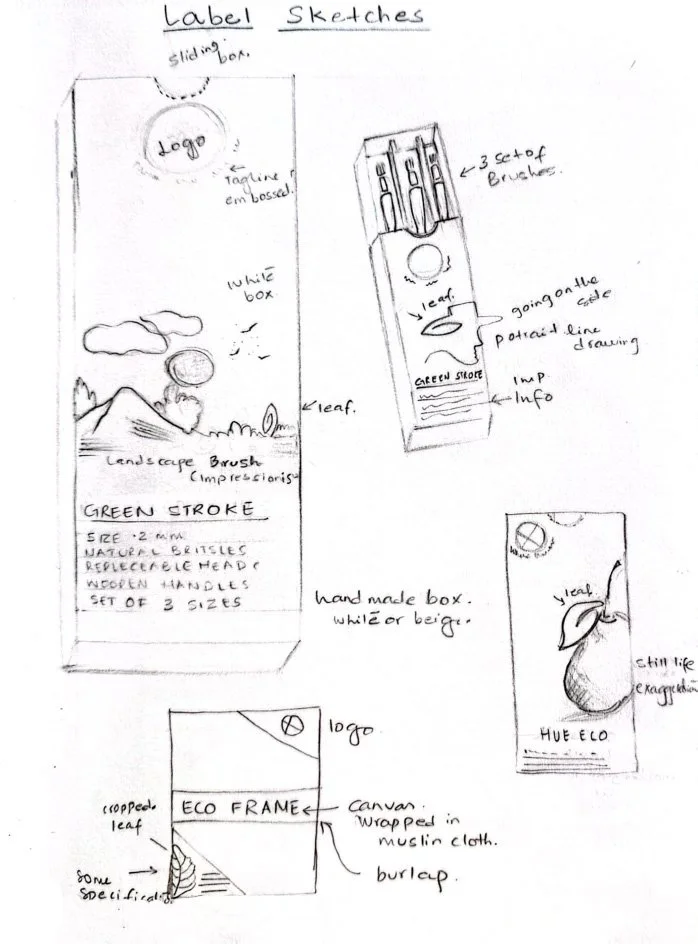 Label Sketches
sliding box.
Logo
Tagline
embossed.
white
box
leaf.
Landscape Brush
(Impressionis
GREEN STROKE
SIZE ·2 mm
NATURAL BRITSLES
REPLECEABLE HEADS
WOODEN HANDLES
SET OF 3 SIZES
3 set of
Brushes.
leaf.
going on the
side
potrait line
drawing
GREEN STROKE
Imp
Info
hand made box.
white or beige.
leaf
still life
exaggeration
HUE ECO
logo
ECO FRAME
canvas.
Wrapped in
muslin cloth.
burlap.
cropped
leaf
some